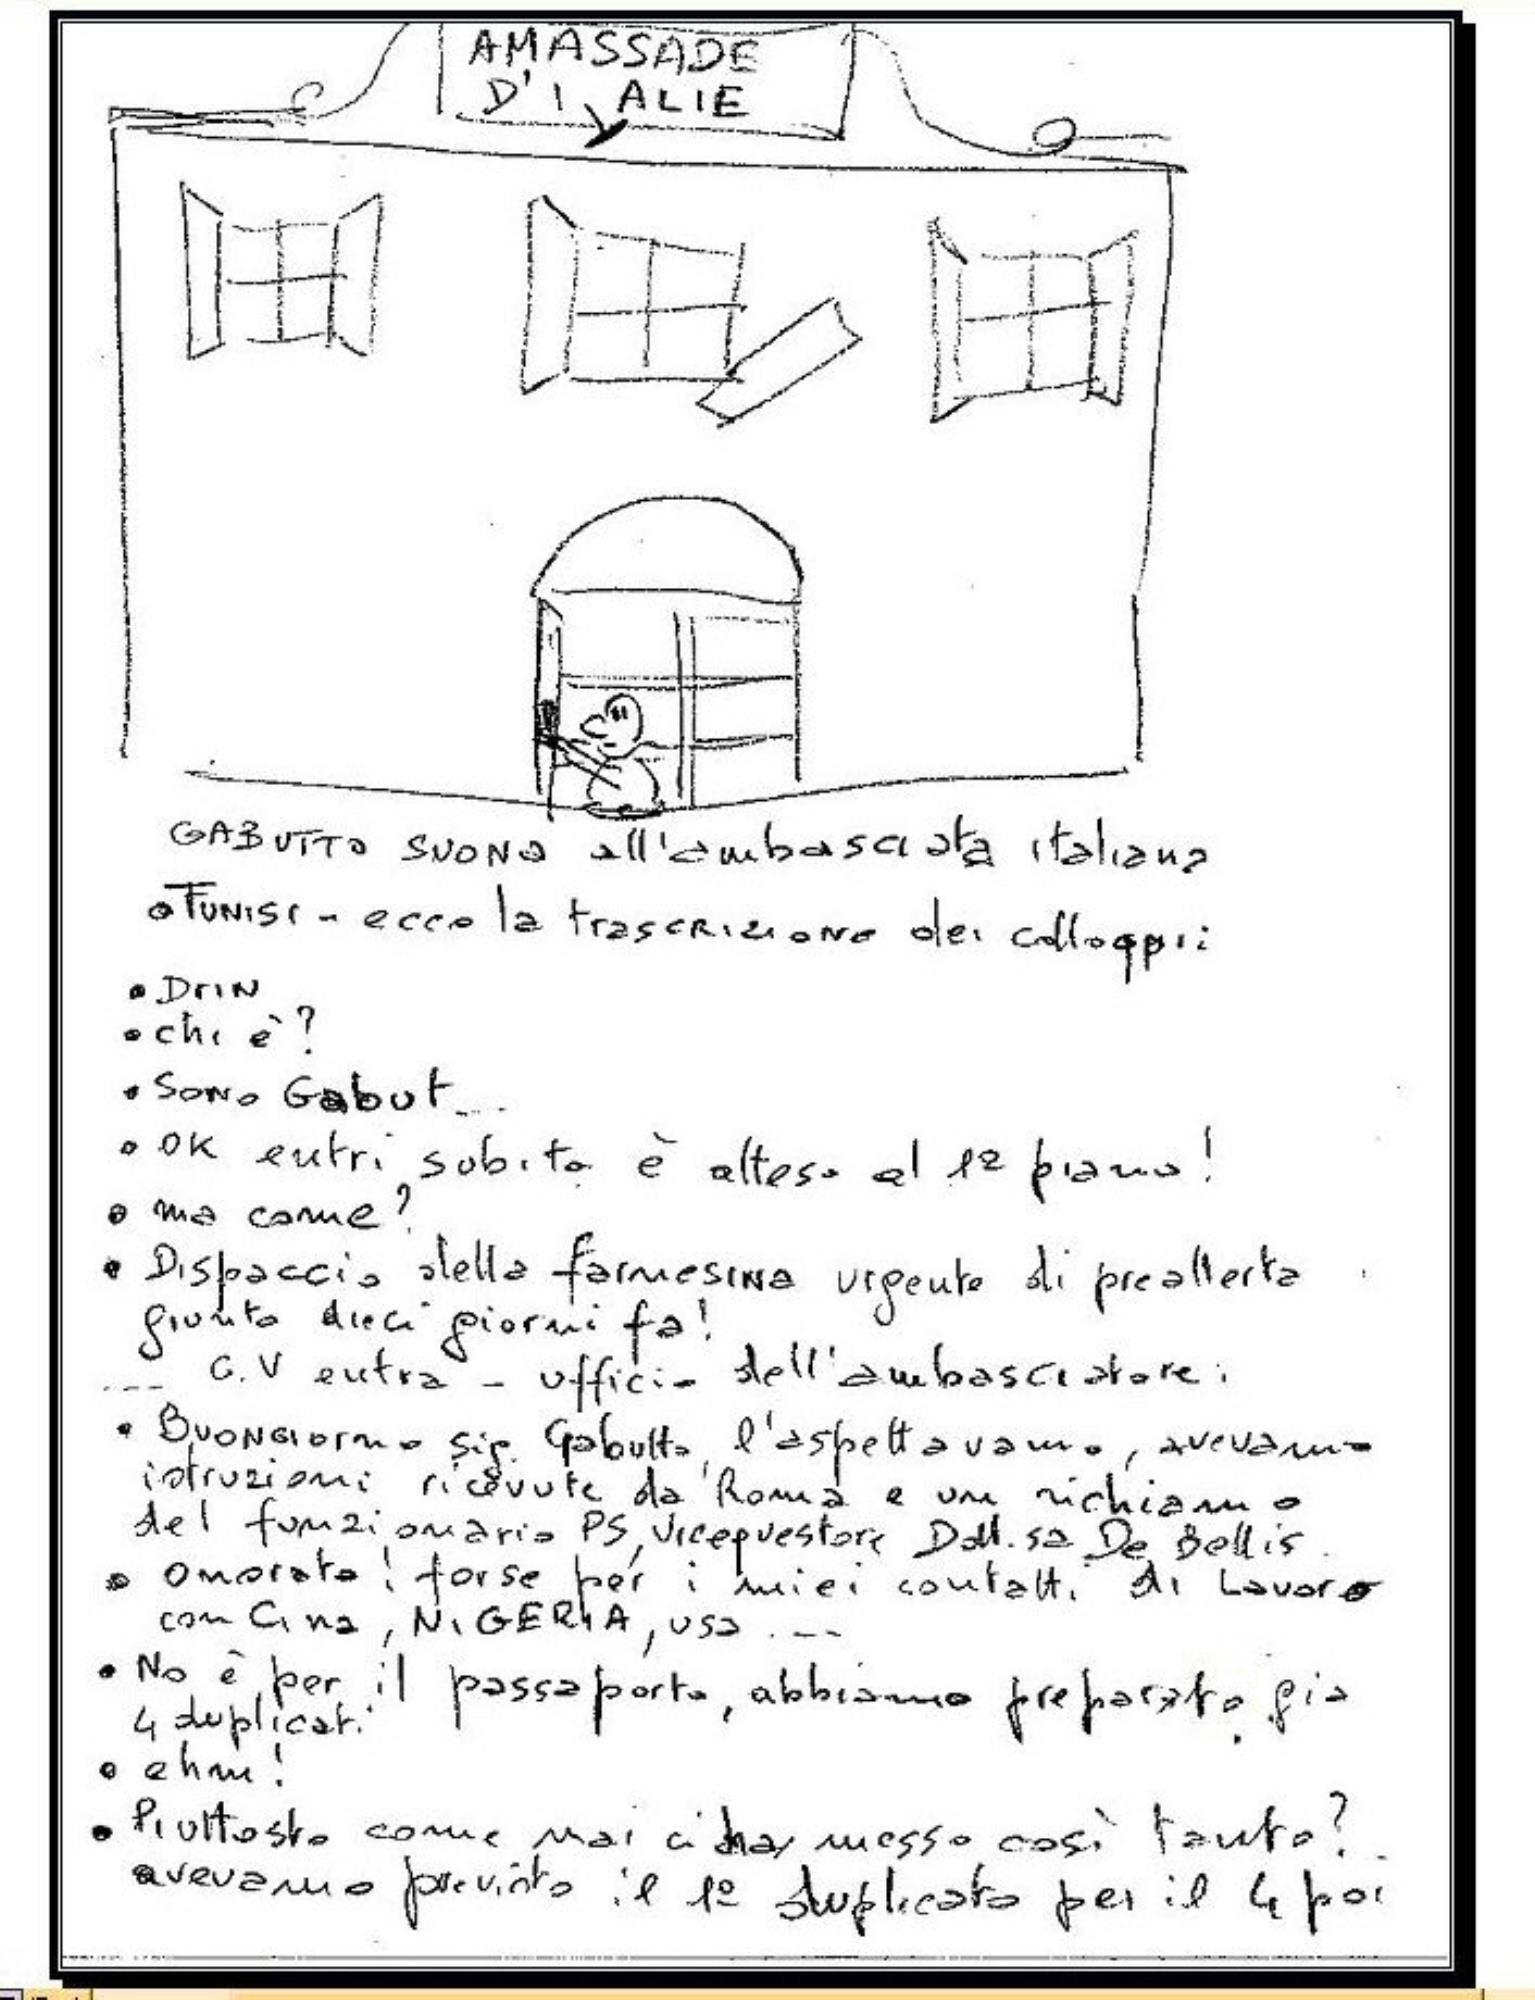 AMASSADE
D'I ALIE
GABUTTO SUONA all'ambasciata italiana
a TUNISI - ecco la trascrizione dei colloqui:
• Drin
• chi è?
• Sono Gabut...
• OK entri subito è atteso al 1º piano!
• ma come?
• Dispaccio della farnesina urgente di preallerta
giunto dieci giorni fa!
--- G.V entra - ufficio dell'ambasciatore:
• Buongiorno sig. Gabutto, l'aspettavamo, avevamo
istruzioni ricevute da Roma e un richiamo
del funzionario PS, Vicequestore Dott.sa De Bellis.
• Onorato! forse per i miei contatti di Lavoro
con Cina, NIGERIA, usa ...
• No è per il passaporto, abbiamo preparato già
4 duplicati
• ehm!
• Piuttosto come mai ci ha messo così tanto?
avevamo previsto il 1º duplicato per il 4 poi